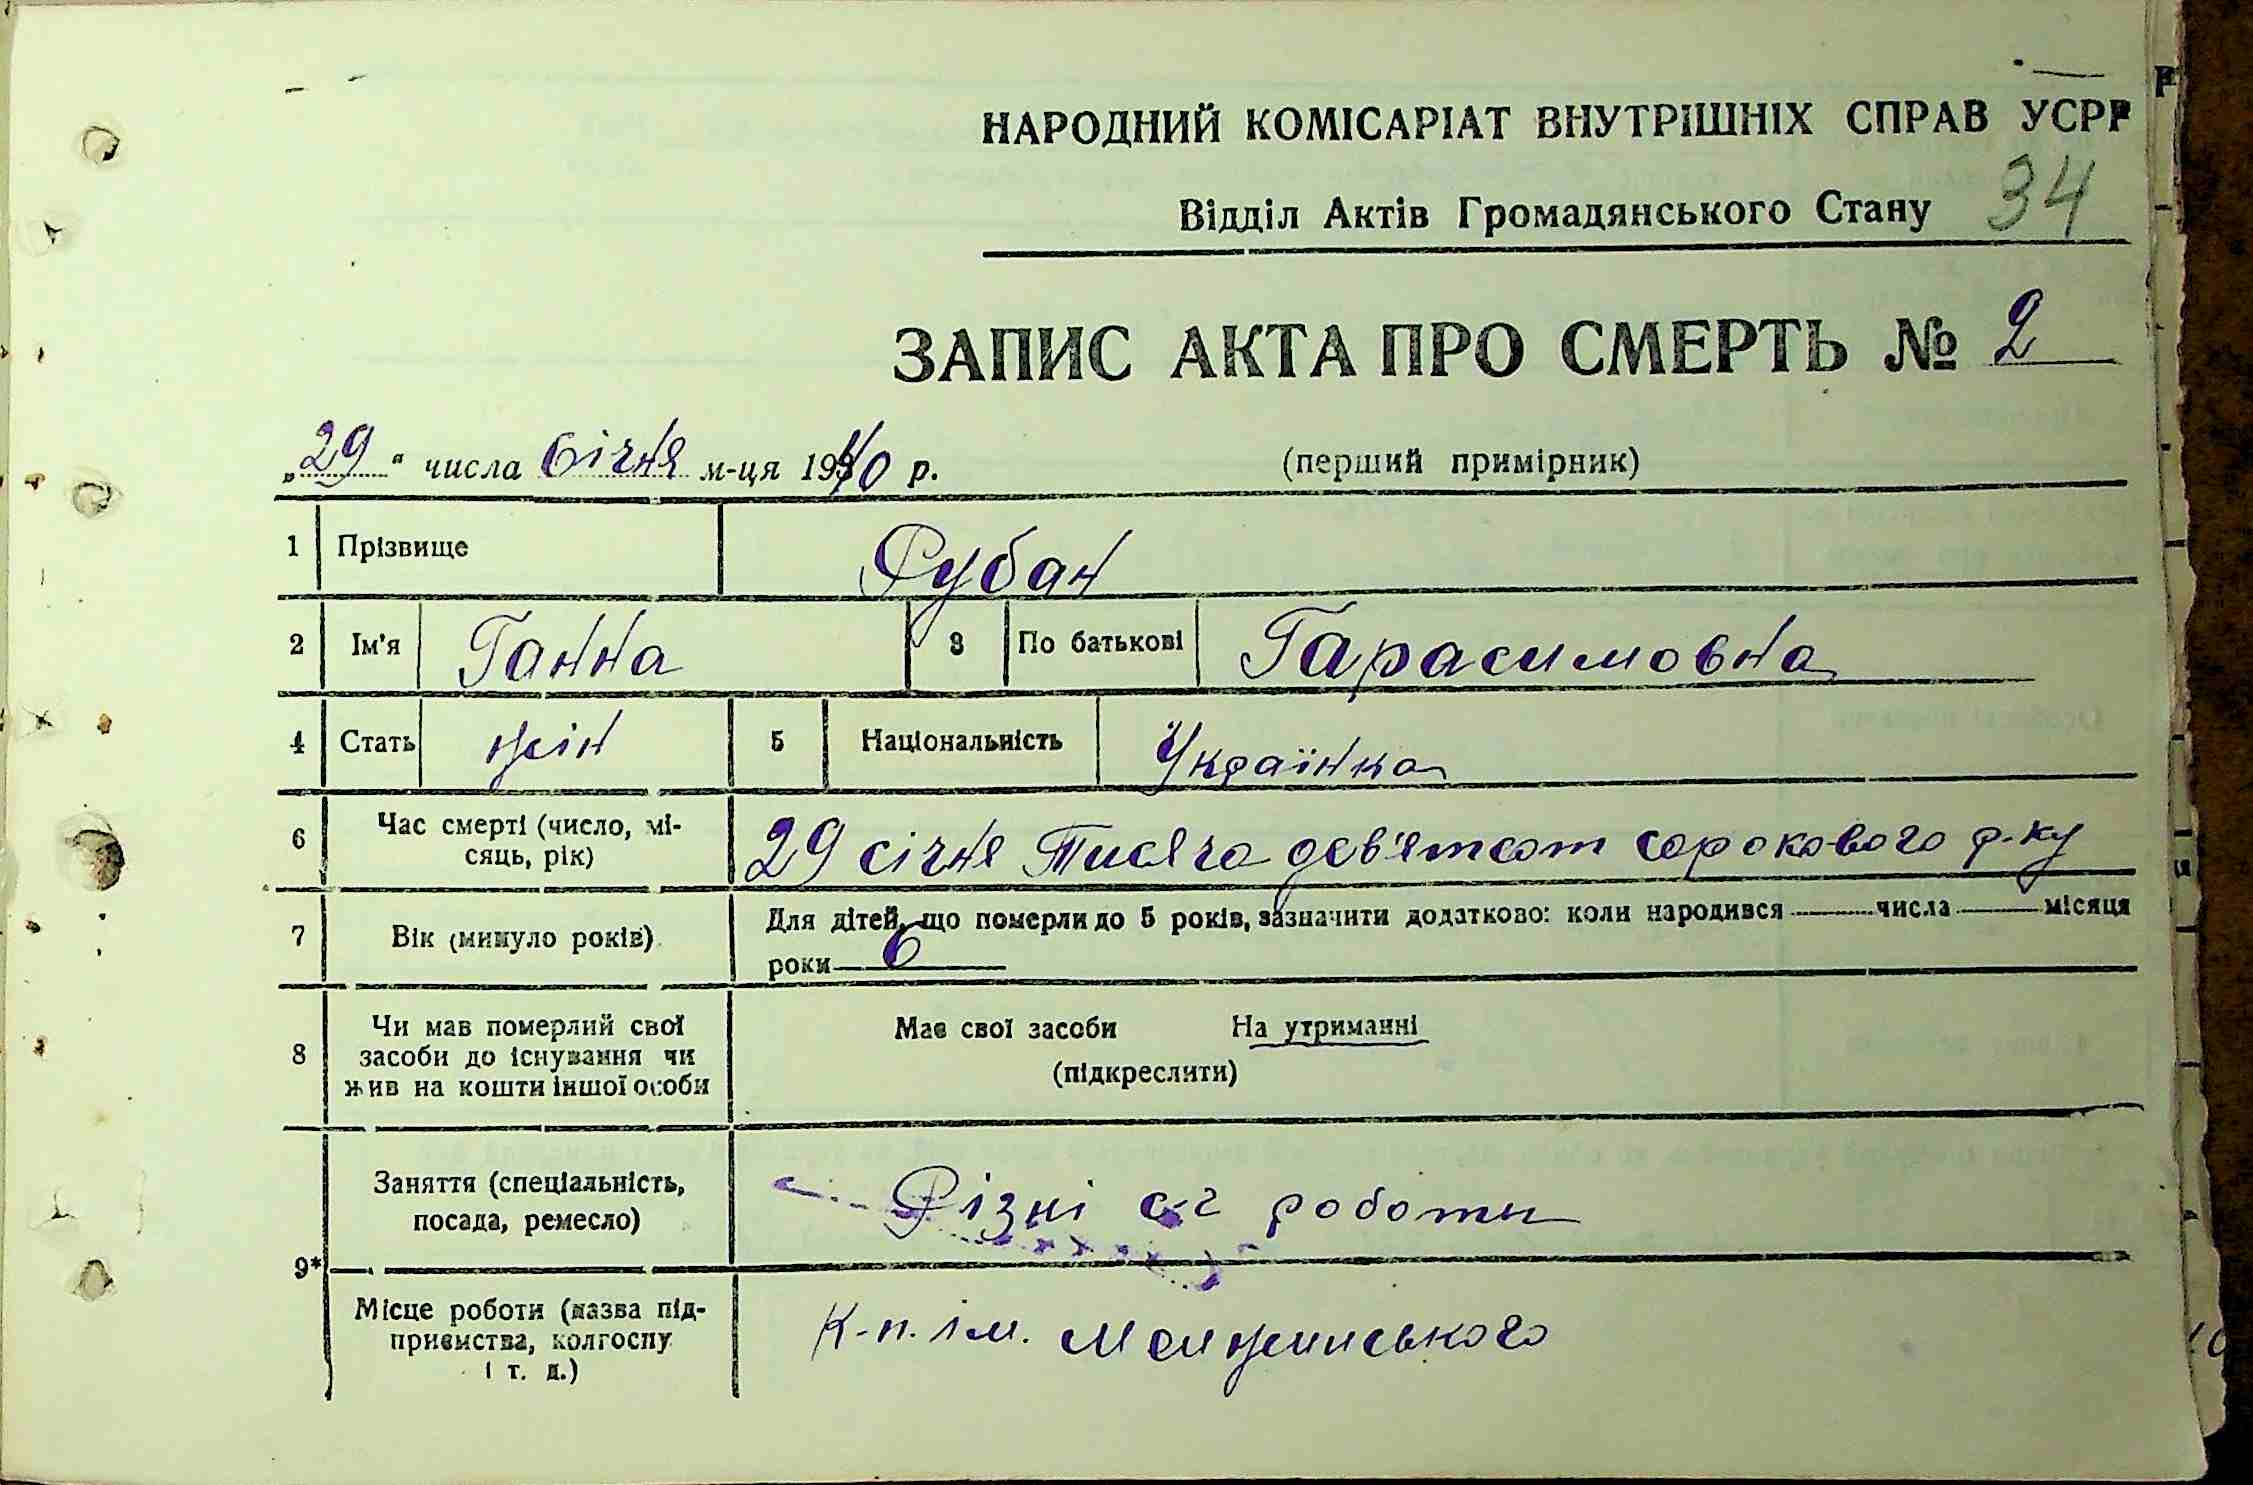 НАРОДНИЙ КОМІСАРІАТ ВНУТРІШНІХ СПРАВ УСРР
Відділ Актів Громадянського Стану 34
ЗАПИС АКТА ПРО СМЕРТЬ № 2
„29“ числа січня м-ця 1940 р. (перший примірник)
1 Прізвище Рубан
2 Ім'я Ганна 3 По батькові Гарасимовна
4 Стать жін 5 Національність Українка
6 Час смерті (число, мі-
сяць, рік) 29 січня тисяча дев'ятсот сорокового р-ку
7 Вік (минуло років) Для дітей, що померли до 5 років, зазначити додатково: коли народився числа місяця
роки 6
8 Чи мав померлий свої
засоби до існування чи
жив на кошти іншої особи
Має свої засоби На утриманні
(підкреслити)
9* Заняття (спеціальність,
посада, ремесло) Різні с-г роботи
Місце роботи (назва під-
приємства, колгоспу
і т. д.) К-п. ім. Менжинського